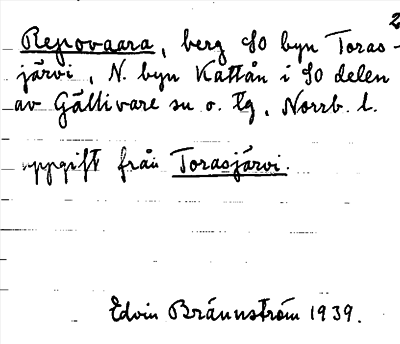 2
Repovaara, berg SO byn Toras-
järvi, N. byn Kattån i SO delen
av Gällivare sn o. tg, Norrb. l.
uppgift från Torasjärvi.
Edvin Brännström 1939.